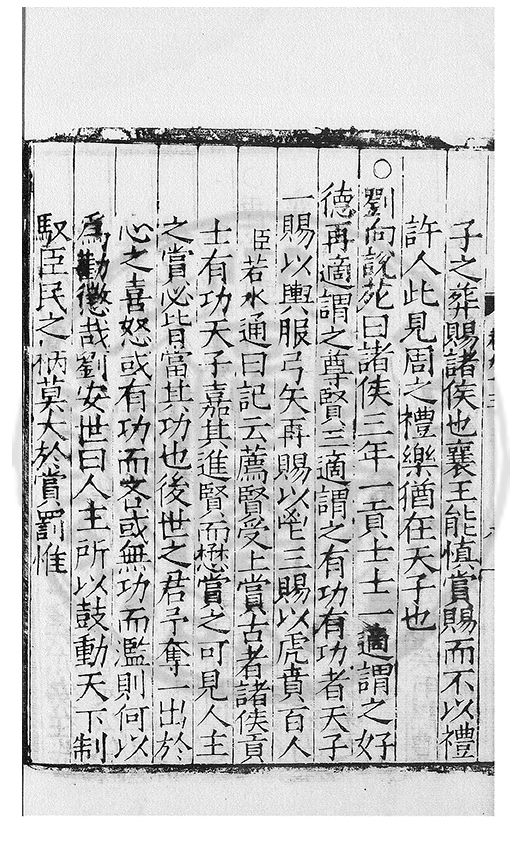 子之葬賜諸侯也襄王能慎賞賜而不以禮
許人此見周之禮樂猶在天子也
○劉向説苑曰諸侯三年一貢士士一適謂之好
德再適謂之尊賢三適謂之有功有功者天子
一賜以輿服弓矢再賜以鬯三賜以虎賁百人
臣若水通曰記云薦賢受上賞古者諸侯貢
士有功天子嘉其進賢而懋賞之可見人主
之賞必皆當其功也後世之君予奪一出於
心之喜怒或有功而吝或無功而濫則何以
爲勸懲哉劉安世曰人主所以鼓動天下制
馭臣民之柄莫大於賞罰惟